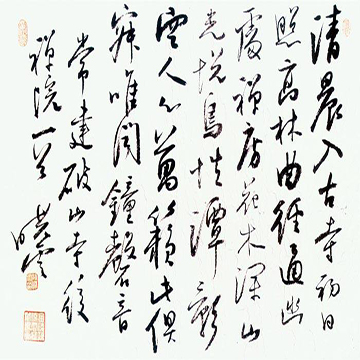 清晨入古寺初日
照高林曲径通幽
處禅房花木深山
光悦鳥性潭影
空人心萬籟此俱
寂唯闻鐘磬音
常建破山寺後
禅院一首